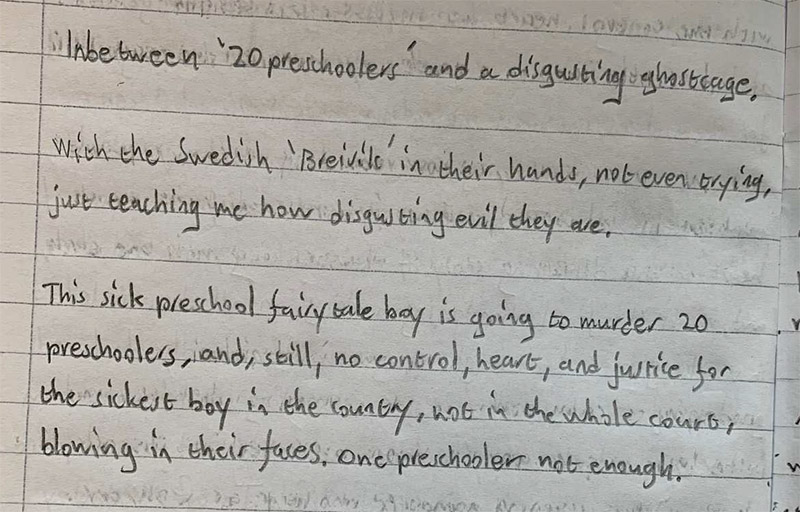 Inbetween '20 preschoolers' and a disgusting ghostcage.
With the Swedish 'Breivik' in their hands, not even trying,
just teaching me how disgusting evil they are.
This sick preschool fairytale boy is going to murder 20
preschoolers, and, still, no control, heart, and justice for
the sickest boy in the country, not in the whole court,
blowing in their faces. One preschooler not enough.